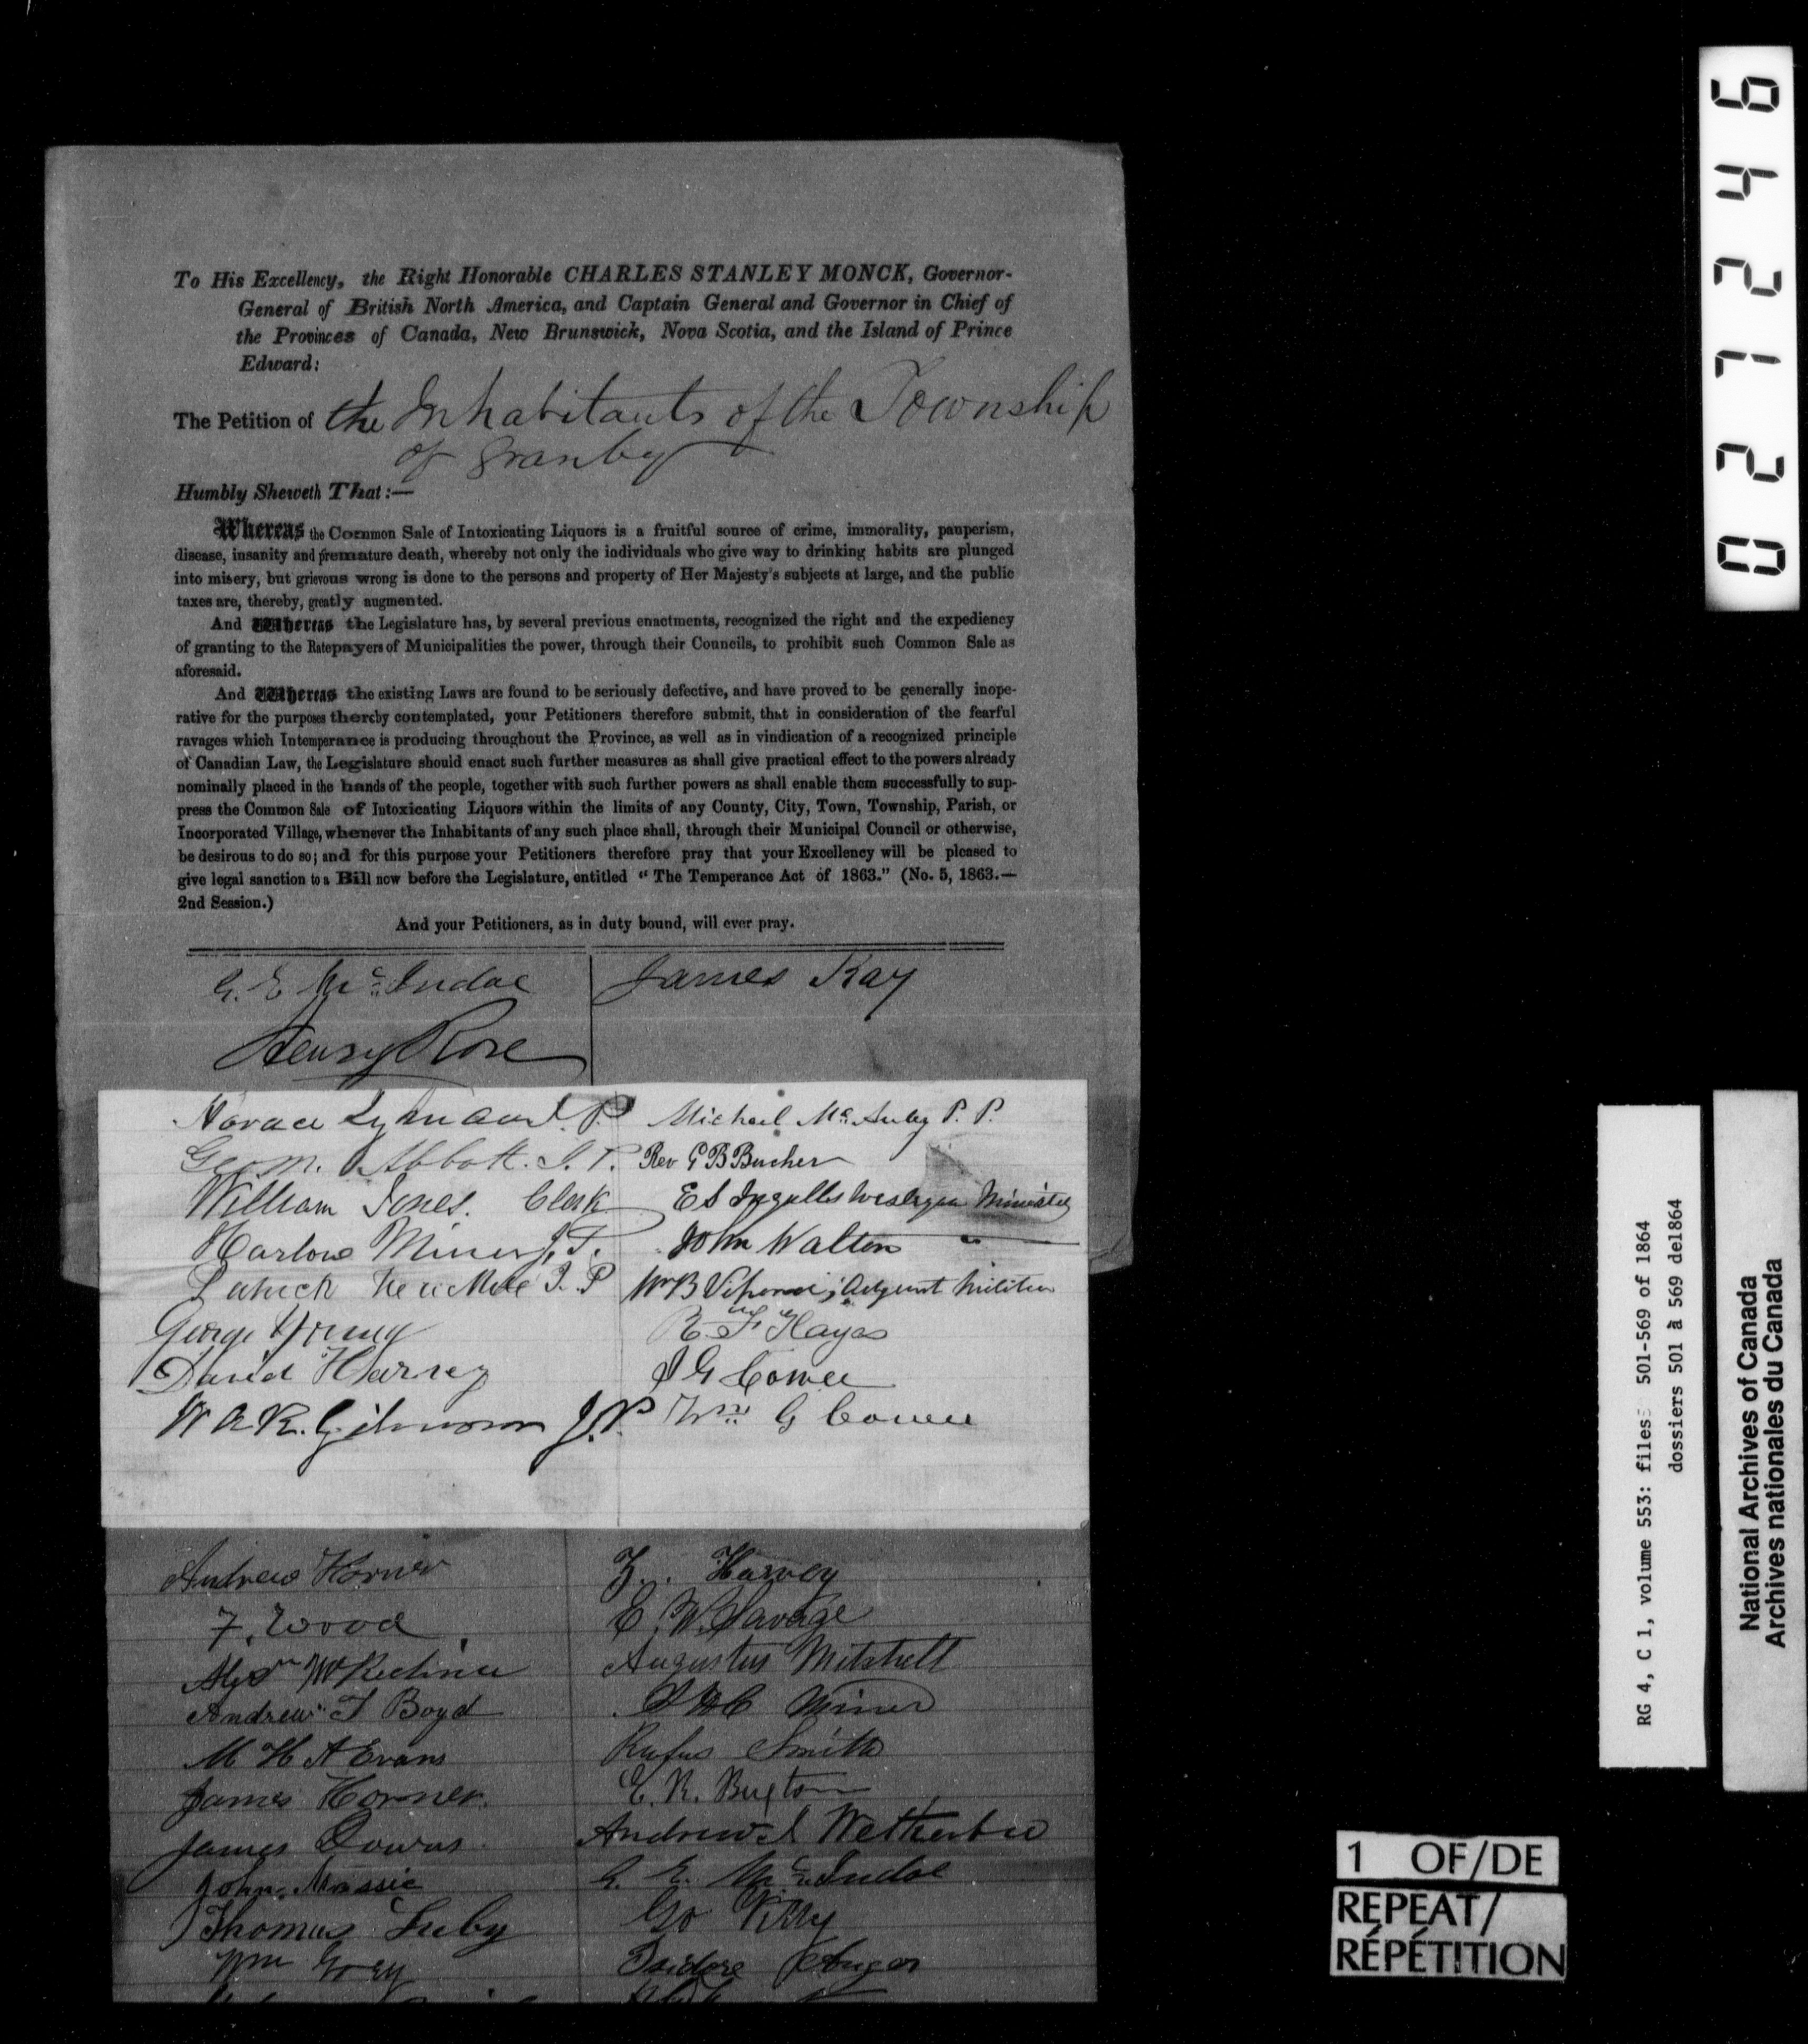 To His Excellency, the Right Honorable CHARLES STANLEY MONCK, Governor-
General of British North America, and Captain General and Governor in Chief of
the Provinces of Canada, New Brunswick, Nova Scotia, and the Island of Prince
Edward:
The Petition of the Inhabitants of the Township
of Granby
Humbly Sheweth That:—
Whereas the Common Sale of Intoxicating Liquors is a fruitful source of crime, immorality, pauperism,
disease, insanity and premature death, whereby not only the individuals who give way to drinking habits are plunged
into misery, but grievous wrong is done to the persons and property of Her Majesty's subjects at large, and the public
taxes are, thereby, greatly augmented.
And Whereas the Legislature has, by several previous enactments, recognized the right and the expediency
of granting to the Ratepayers of Municipalities the power, through their Councils, to prohibit such Common Sale as
aforesaid.
And Whereas the existing Laws are found to be seriously defective, and have proved to be generally inope-
rative for the purposes thereby contemplated, your Petitioners therefore submit, that in consideration of the fearful
ravages which Intemperance is producing throughout the Province, as well as in vindication of a recognized principle
of Canadian Law, the Legislature should enact such further measures as shall give practical effect to the powers already
nominally placed in the hands of the people, together with such further powers as shall enable them successfully to sup-
press the Common Sale of Intoxicating Liquors within the limits of any County, City, Town, Township, Parish, or
Incorporated Village, whenever the Inhabitants of any such place shall, through their Municipal Council or otherwise,
be desirous to do so; and for this purpose your Petitioners therefore pray that your Excellency will be pleased to
give legal sanction to a Bill now before the Legislature, entitled "The Temperance Act of 1863." (No. 5, 1863.—
2nd Session.)
And your Petitioners, as in duty bound, will ever pray.
G. E. McIndoe
Henry Rose
James Kay
Horace Lyman J.P.
Geo. M. Abbott. J. P.
William Jones. Clerk
Harlow Miner J.P.
Patrick J. P
George Young
David Harvey
W A R. Gilmour J.P.
Michael McAuley P. P.
Rev G B Bucher
E S Ingalls Wesleyan Minister
John Walton "
Wm B Vipond, Adjunt Militia
R. F Hayes
J G Cowie
Wm G Cowie
Andrew Horner
F. Wood
Andrew T Boyd
M H A Evans
James Horner.
James Downs
John Massie
Thomas Luby
Wm Grey
Z. Harvey
E. W. Savage
Augustus Mitchell
Miner
Rufus Smith
E. R. Buxton
Andrew J Wetherbee
G. E. McIndoe
Geo Vitty
Isidore Auger
027246
RG 4, C 1, volume 553: files 501-569 of 1864
dossiers 501 à 569 de1864
National Archives of Canada
Archives nationales du Canada
1 OF/DE
REPEAT/
RÉPÉTITION